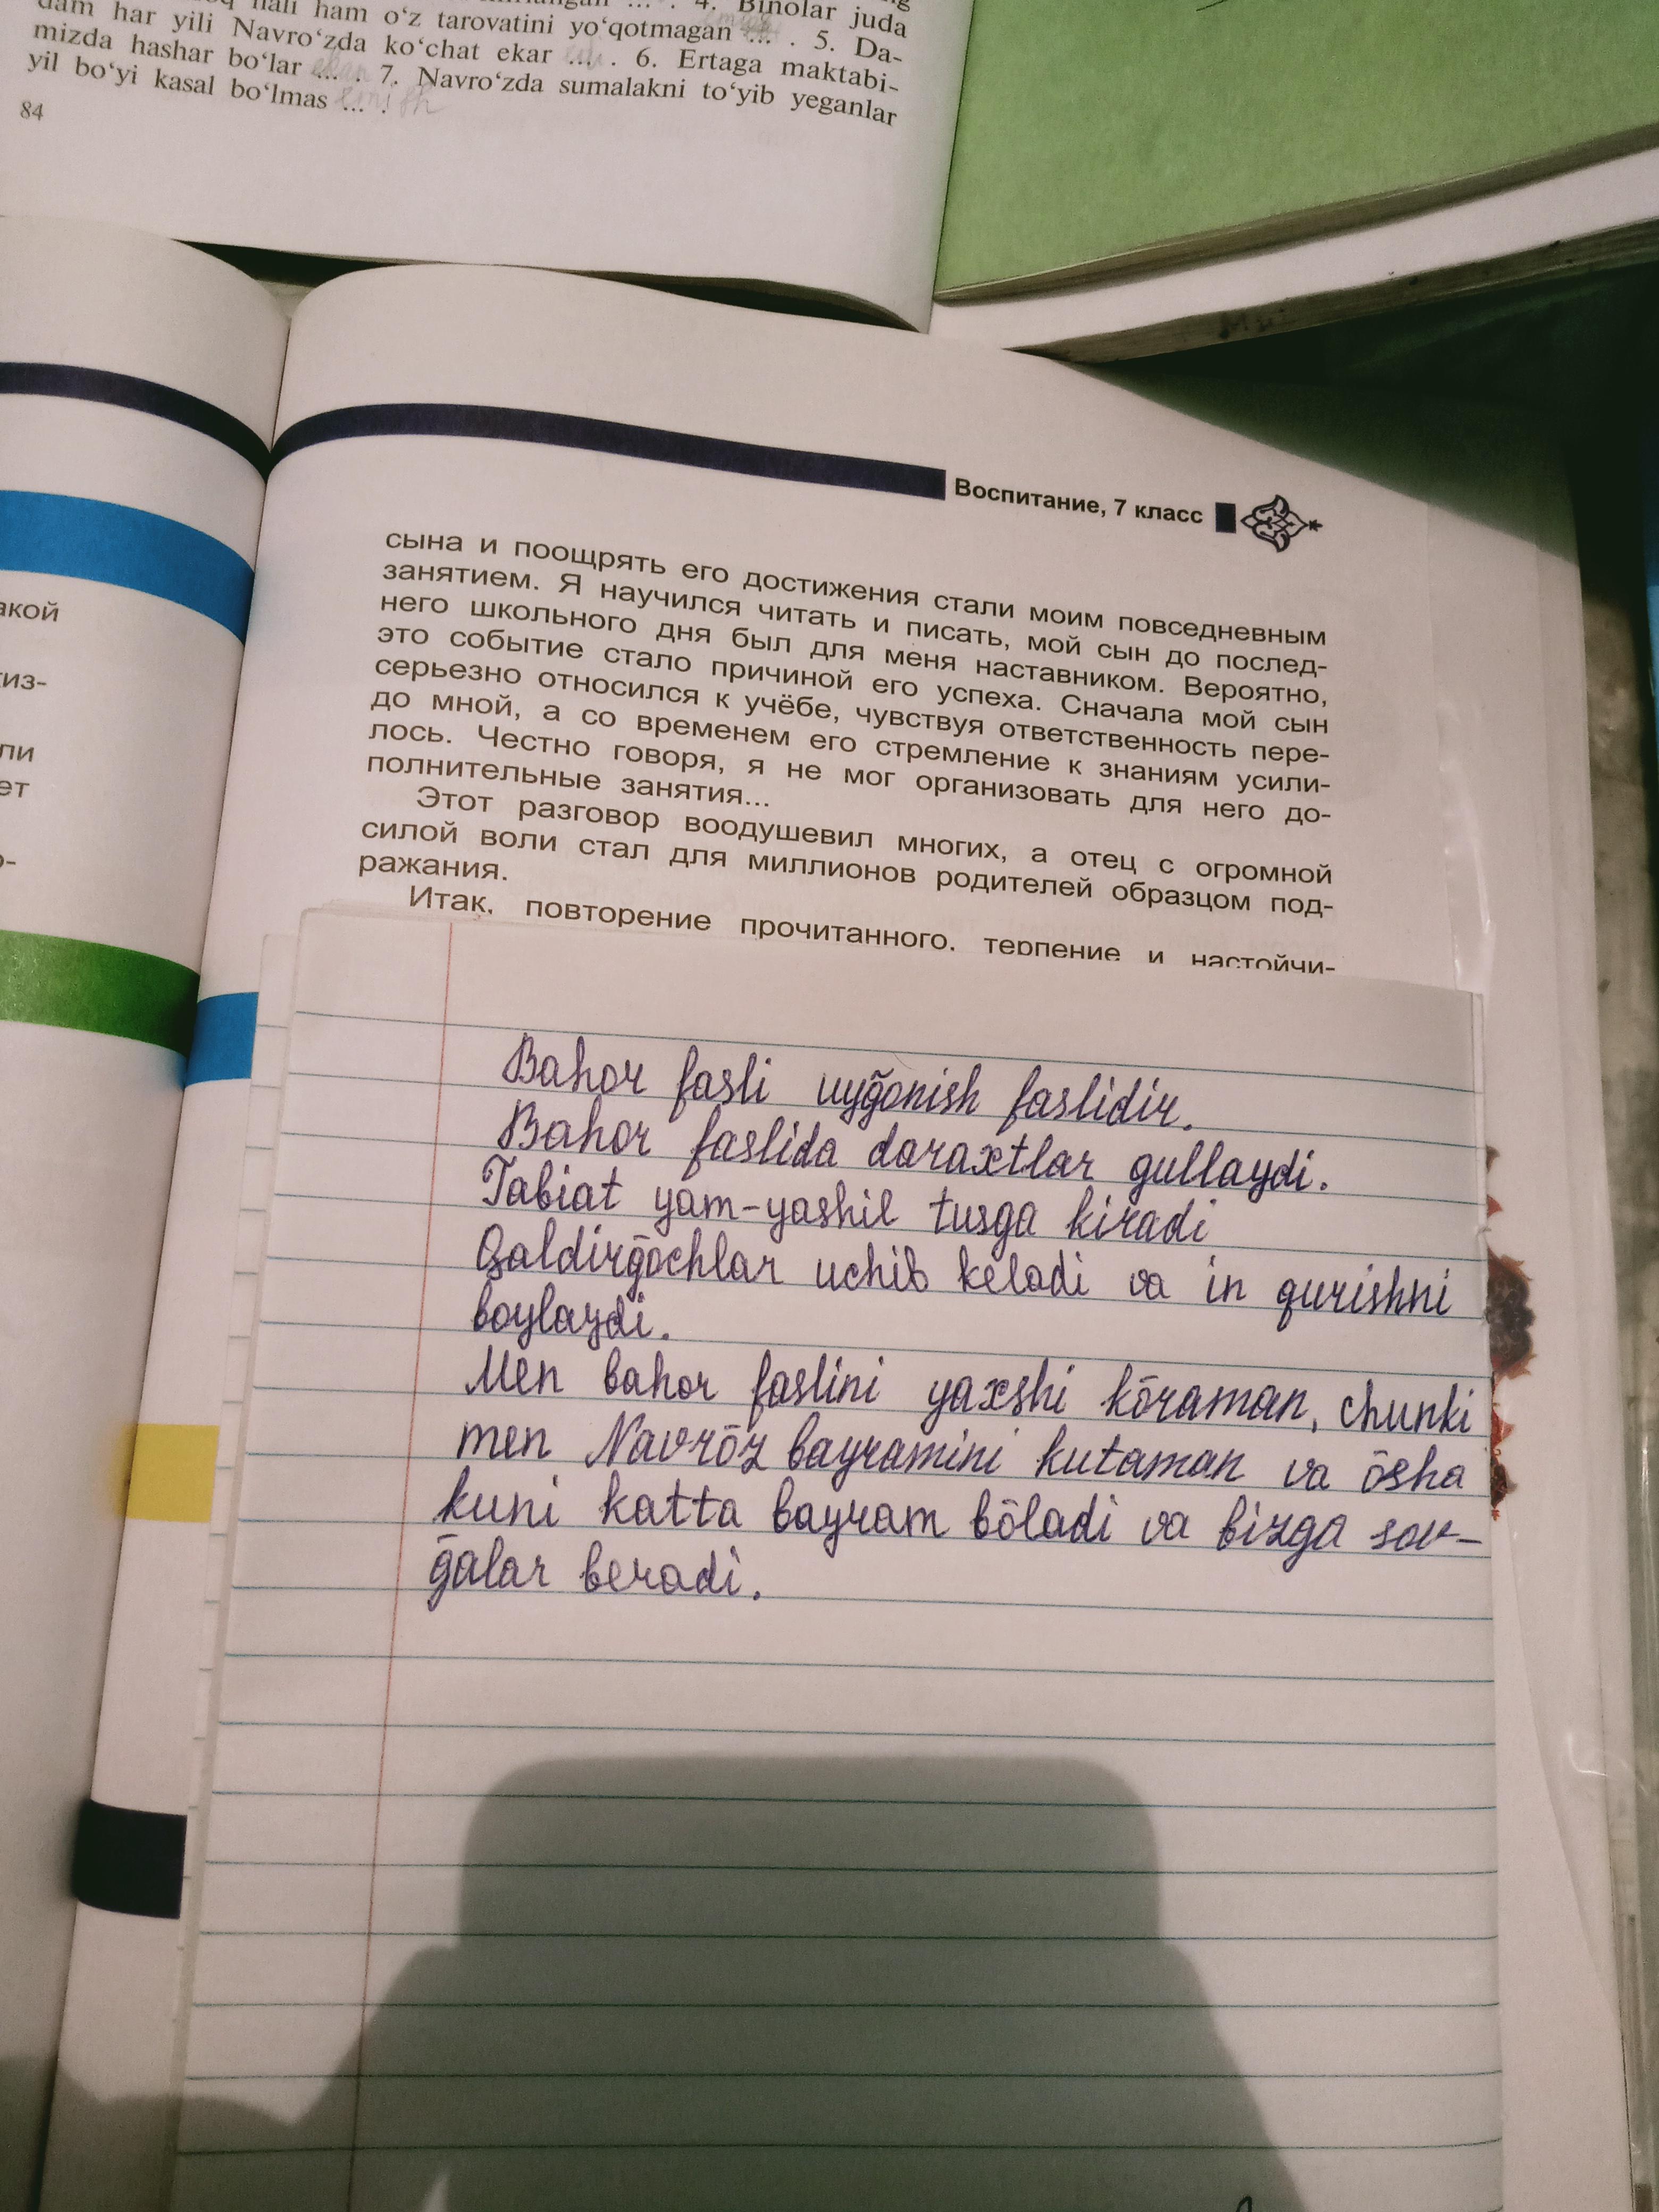 4. Binolar juda
hali ham o‘z tarovatini yo‘qotmagan ... . 5. Da-
dam har yili Navro‘zda ko‘chat ekar ... . 6. Ertaga maktabi-
mizda hashar bo‘lar ekan ... . 7. Navro‘zda sumalakni to‘yib yeganlar
yil bo‘yi kasal bo‘lmas emish ... .
84
акой
из-
ли
ет
о-
Воспитание, 7 класс
сына и поощрять его достижения стали моим повседневным
занятием. Я научился читать и писать, мой сын до послед-
него школьного дня был для меня наставником. Вероятно,
это событие стало причиной его успеха. Сначала мой сын
серьезно относился к учёбе, чувствуя ответственность пере-
до мной, а со временем его стремление к знаниям усили-
лось. Честно говоря, я не мог организовать для него до-
полнительные занятия...
Этот разговор воодушевил многих, а отец с огромной
силой воли стал для миллионов родителей образцом под-
ражания.
Итак, повторение прочитанного, терпение и настойчи-
Bahor fasli uyḡonish faslidir.
Bahor faslida daraxtlar gullaydi.
Tabiat yam-yashil tusga kiradi
Qaldirḡochlar uchib keladi va in qurishni
boylaydi.
Men bahor faslini yaxshi kōraman, chunki
men Navrōz bayramini kutaman va ōsha
kuni katta bayram bōladi va bizga sov-
ḡalar beradi.